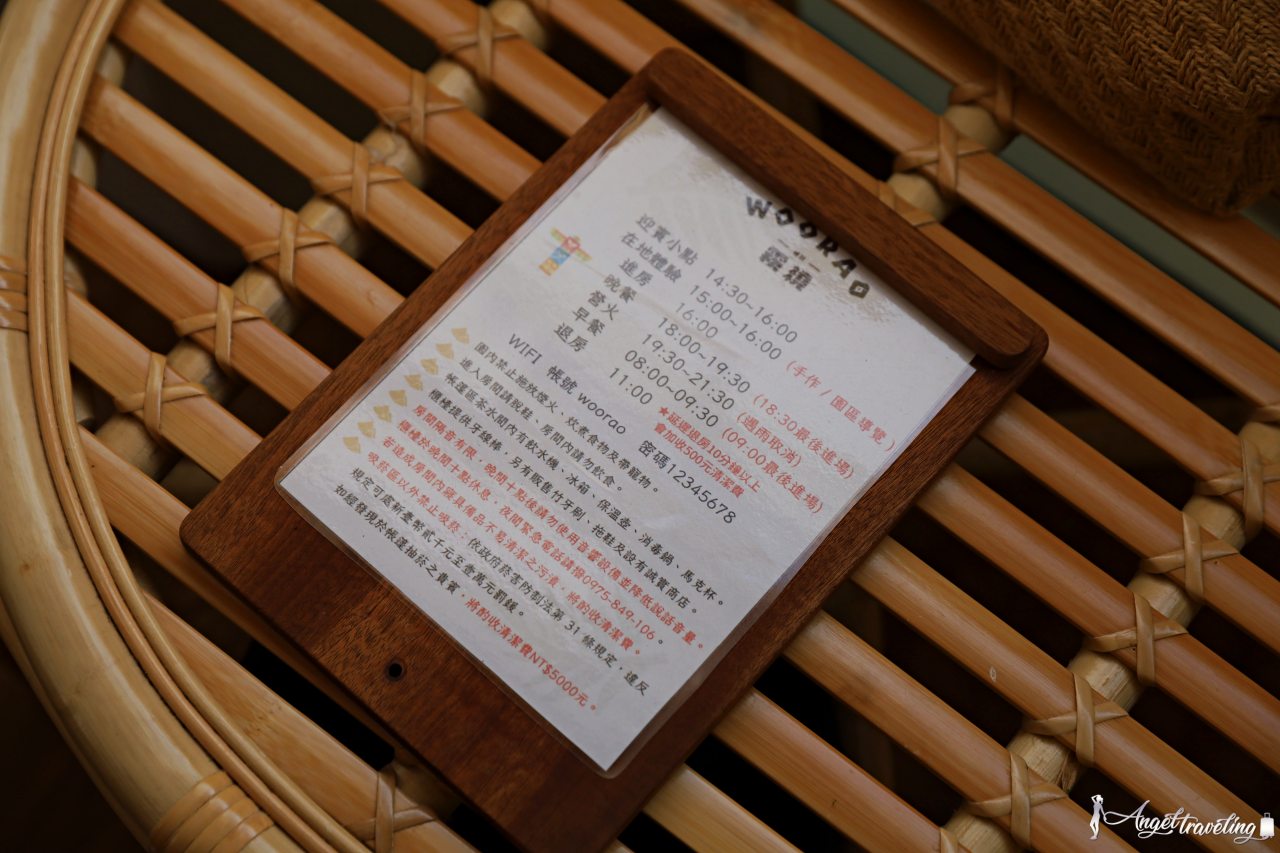 WOORAO
迎賓小點 14:30~16:00
在地體驗 15:00~16:00 (手作 / 園區導覽 )
進房 16:00
晚餐 18:00~19:30 (18:30最後進場)
營火 19:30~21:30 (遇雨取消)
早餐 08:00~09:30 (09:00最後進場)
退房 11:00 ★延遲退房10分鐘以上
會加收500元清潔費
WIFI 帳號 woorao 密碼12345678
園內禁止施放煙火、炊煮食物及帶寵物。
進入房間請脫鞋、房間內請勿飲食。
帳篷區茶水間內有飲水機、冰箱、保溫壺、消毒鍋、馬克杯。
櫃檯提供牙線棒，另有販售竹牙刷，拖鞋及設有誠實商店。
房間隔音有限，晚間十點後請勿使用音響設備並降低說話音量。
櫃檯於晚間十點休息，夜間緊急電話請撥0975-849-106。
若造成房間內寢具備品不易清潔之污漬，將酌收清潔費。
吸菸區以外禁止吸菸；依政府菸害防制法第 31 條規定，違反
規定可處新臺幣貳千元至壹萬元罰鍰。
如經發現於帳篷抽菸之貴賓，將酌收清潔費NT$5000元。
Angel traveling